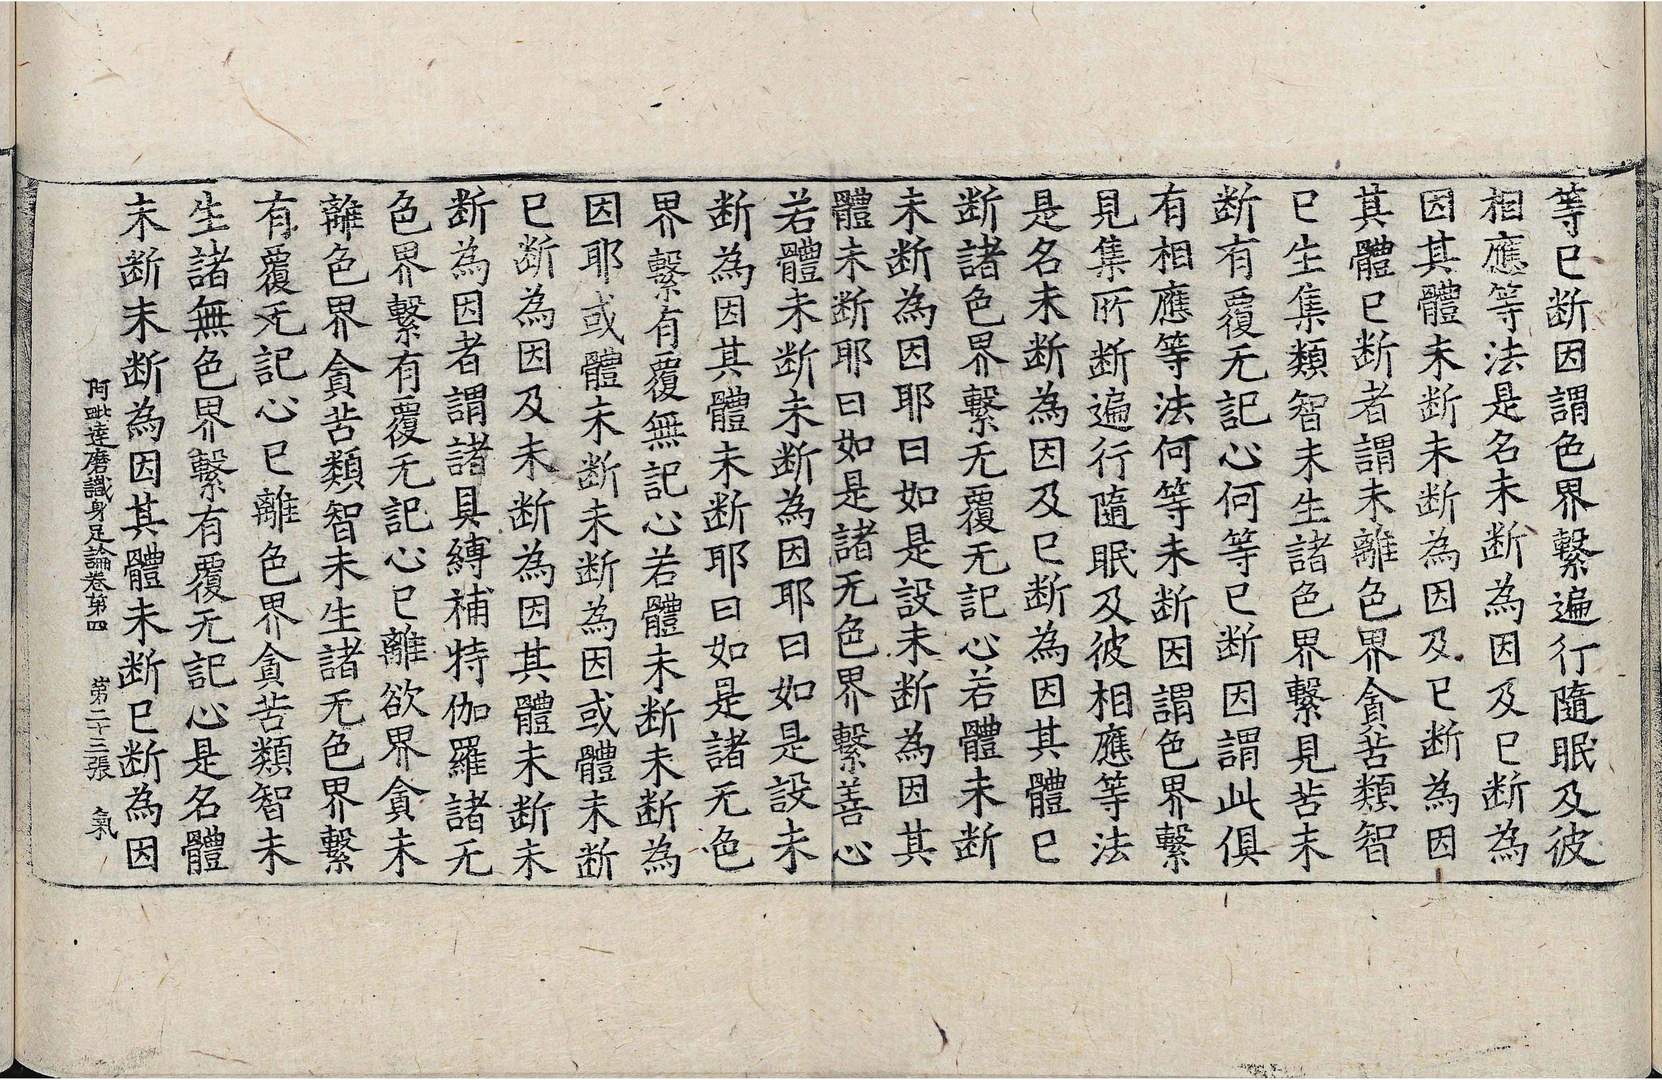 等已断因謂色界繫遍行隨眠及彼
相應等法是名未断為因及已断為
因其體未断未断為因及已断為因
其體已断者謂未離色界貪苦類智
已生集類智未生諸色界繫見苦未
断有覆无記心何等已断因謂此俱
有相應等法何等未断因謂色界繫
見集所断遍行隨眠及彼相應等法
是名未断為因及已断為因其體已
断諸色界繫无覆无記心若體未断
未断為因耶曰如是設未断為因其
體未断耶曰如是諸无色界繫善心
若體未断未断為因耶曰如是設未
断為因其體未断耶曰如是諸无色
界繫有覆無記心若體未断未断為
因耶或體未断未断為因或體未断
已断為因及未断為因其體未断未
断為因者謂諸具縛補特伽羅諸无
色界繫有覆无記心已離欲界貪未
離色界貪苦類智未生諸无色界繫
有覆无記心已離色界貪苦類智未
生諸無色界繫有覆无記心是名體
未断未断為因其體未断已断為因
阿毗達磨識身足論卷第四 第二十三張 氣